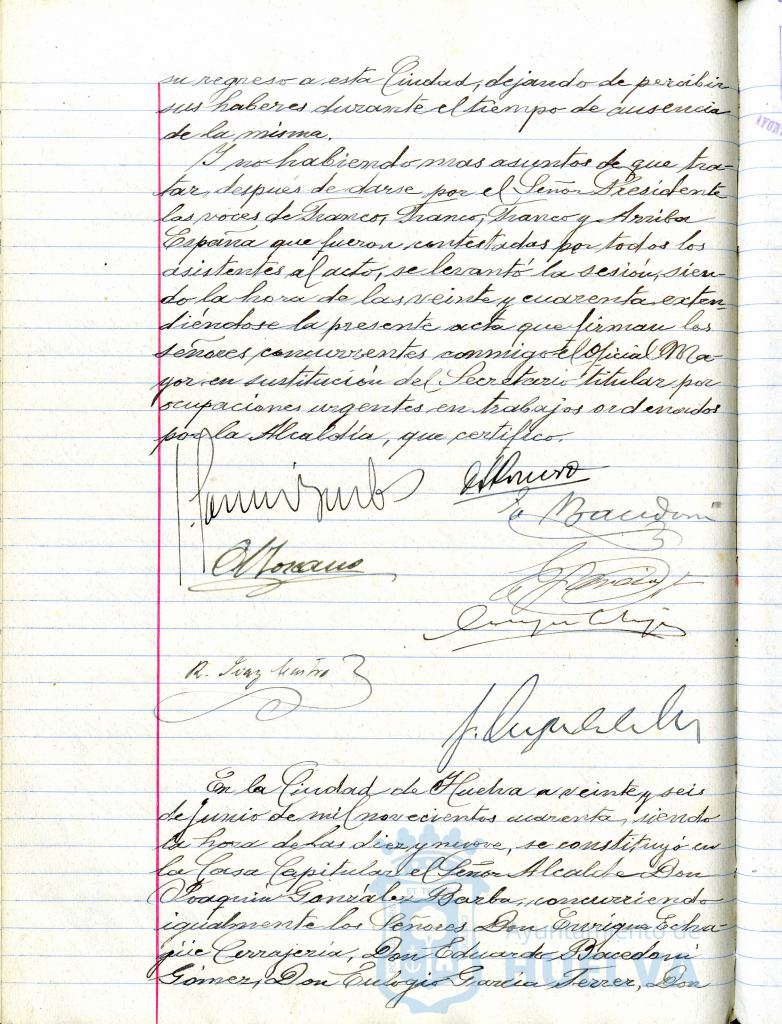 su regreso a esta Ciudad, dejando de percibir
sus haberes durante el tiempo de ausencia
de la misma.
Y no habiendo mas asuntos de que tra-
tar, después de darse por el Señor Presidente
las voces de Franco, Franco, Franco y Arriba
España que fueron contestadas por todos los
asistentes al acto, se levantó la sesión, sien-
do la hora de las veinte y cuarenta, exten-
diéndose la presente acta que firman los
señores concurrentes conmigo el Oficial Ma-
yor en sustitución del Secretario titular, por
ocupaciones urgentes en trabajos ordenados
por la Alcaldía, que certifico.
E. Bacedoni
R. Diaz
En la Ciudad de Huelva a veinte y seis
de Junio de mil novecientos cuarenta, siendo
la hora de las diez y nueve, se constituyó en
la Casa Capitular el Señor Alcalde Don
Joaquin González Barba, concurriendo
igualmente los Señores Don Enrique Echa-
güe Cerrajería, Don Eduardo Bacedoni
Gómez, Don Eulogio Garcia Ferrer, Don
Ayuntamiento de
HUELVA